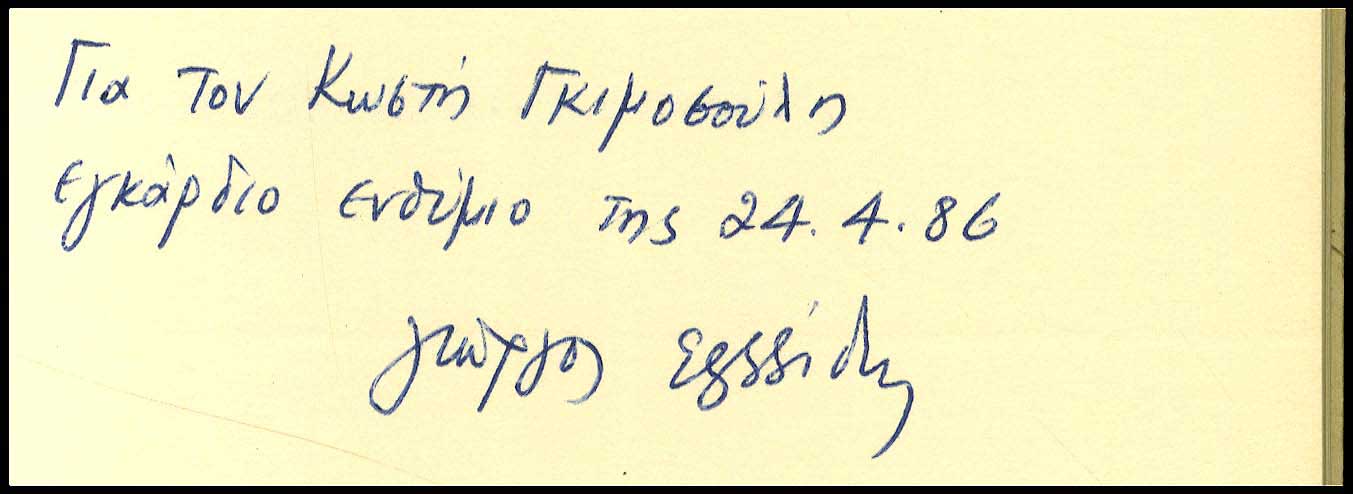 Για τον Κωστή Γκιμοσούλη
εγκάρδιο ενθύμιο της 24.4.86
Γιώργος